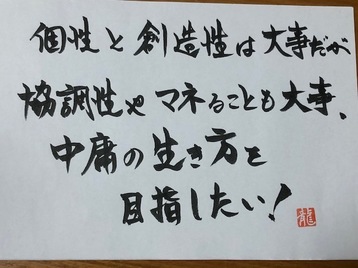 個性と創造性は大事だが
協調性やマネることも大事、
中庸の生き方を
目指したい!
龍